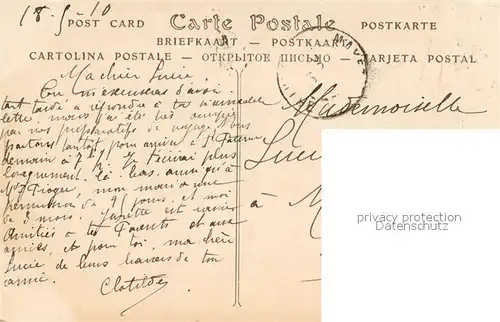 18-5-10
POST CARD Carte Postale POSTKARTE
BRIEFKAART - POSTKAART
CARTOLINA POSTALE - ОТКРЫТОЕ ПИСЬМО - TARJETA POSTAL
Ma chère Lucie,
Tu m'excuseras d'avoir
tant tardé à répondre à ta si aimable
lettre, mais j'ai été très occupée
par nos préparatifs de voyage, nous
partons tantôt pour arriver à St
demain à 7 h ½. Je t'écrirai plus
longuement là-bas, ainsi qu'à
Mr mon mari a une
permission de 21 jours et moi
de 3 mois. est
Amitiés à tes Parents et aux
amies, et pour toi, ma chère
Lucie de bons baisers de ton
amie.
Clotilde
Mademoiselle
Luci
à M
privacy protection
oldthing.de